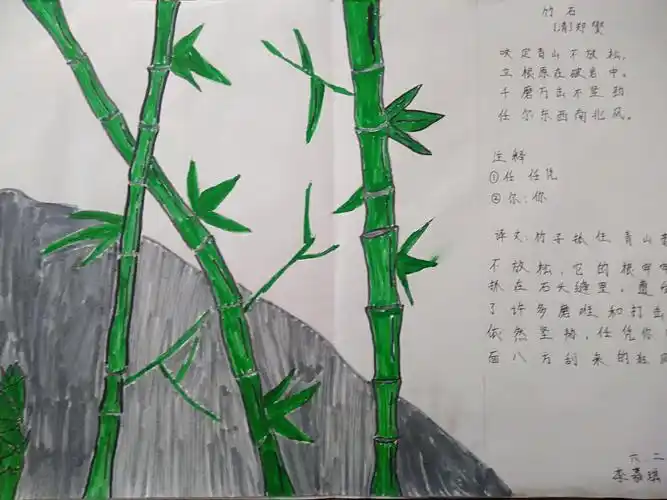 竹石
[清]郑燮
咬定青山不放松,
立根原在破岩中。
千磨万击不坚劲
任尔东西南北风。
注释
①任 任凭
②尔:你
译文:竹子抓住青山
不放松,它的根
抓在石头缝里,
了许多磨难和打击
依然坚劲,任凭你
面八方刮来的狂风
六二
李